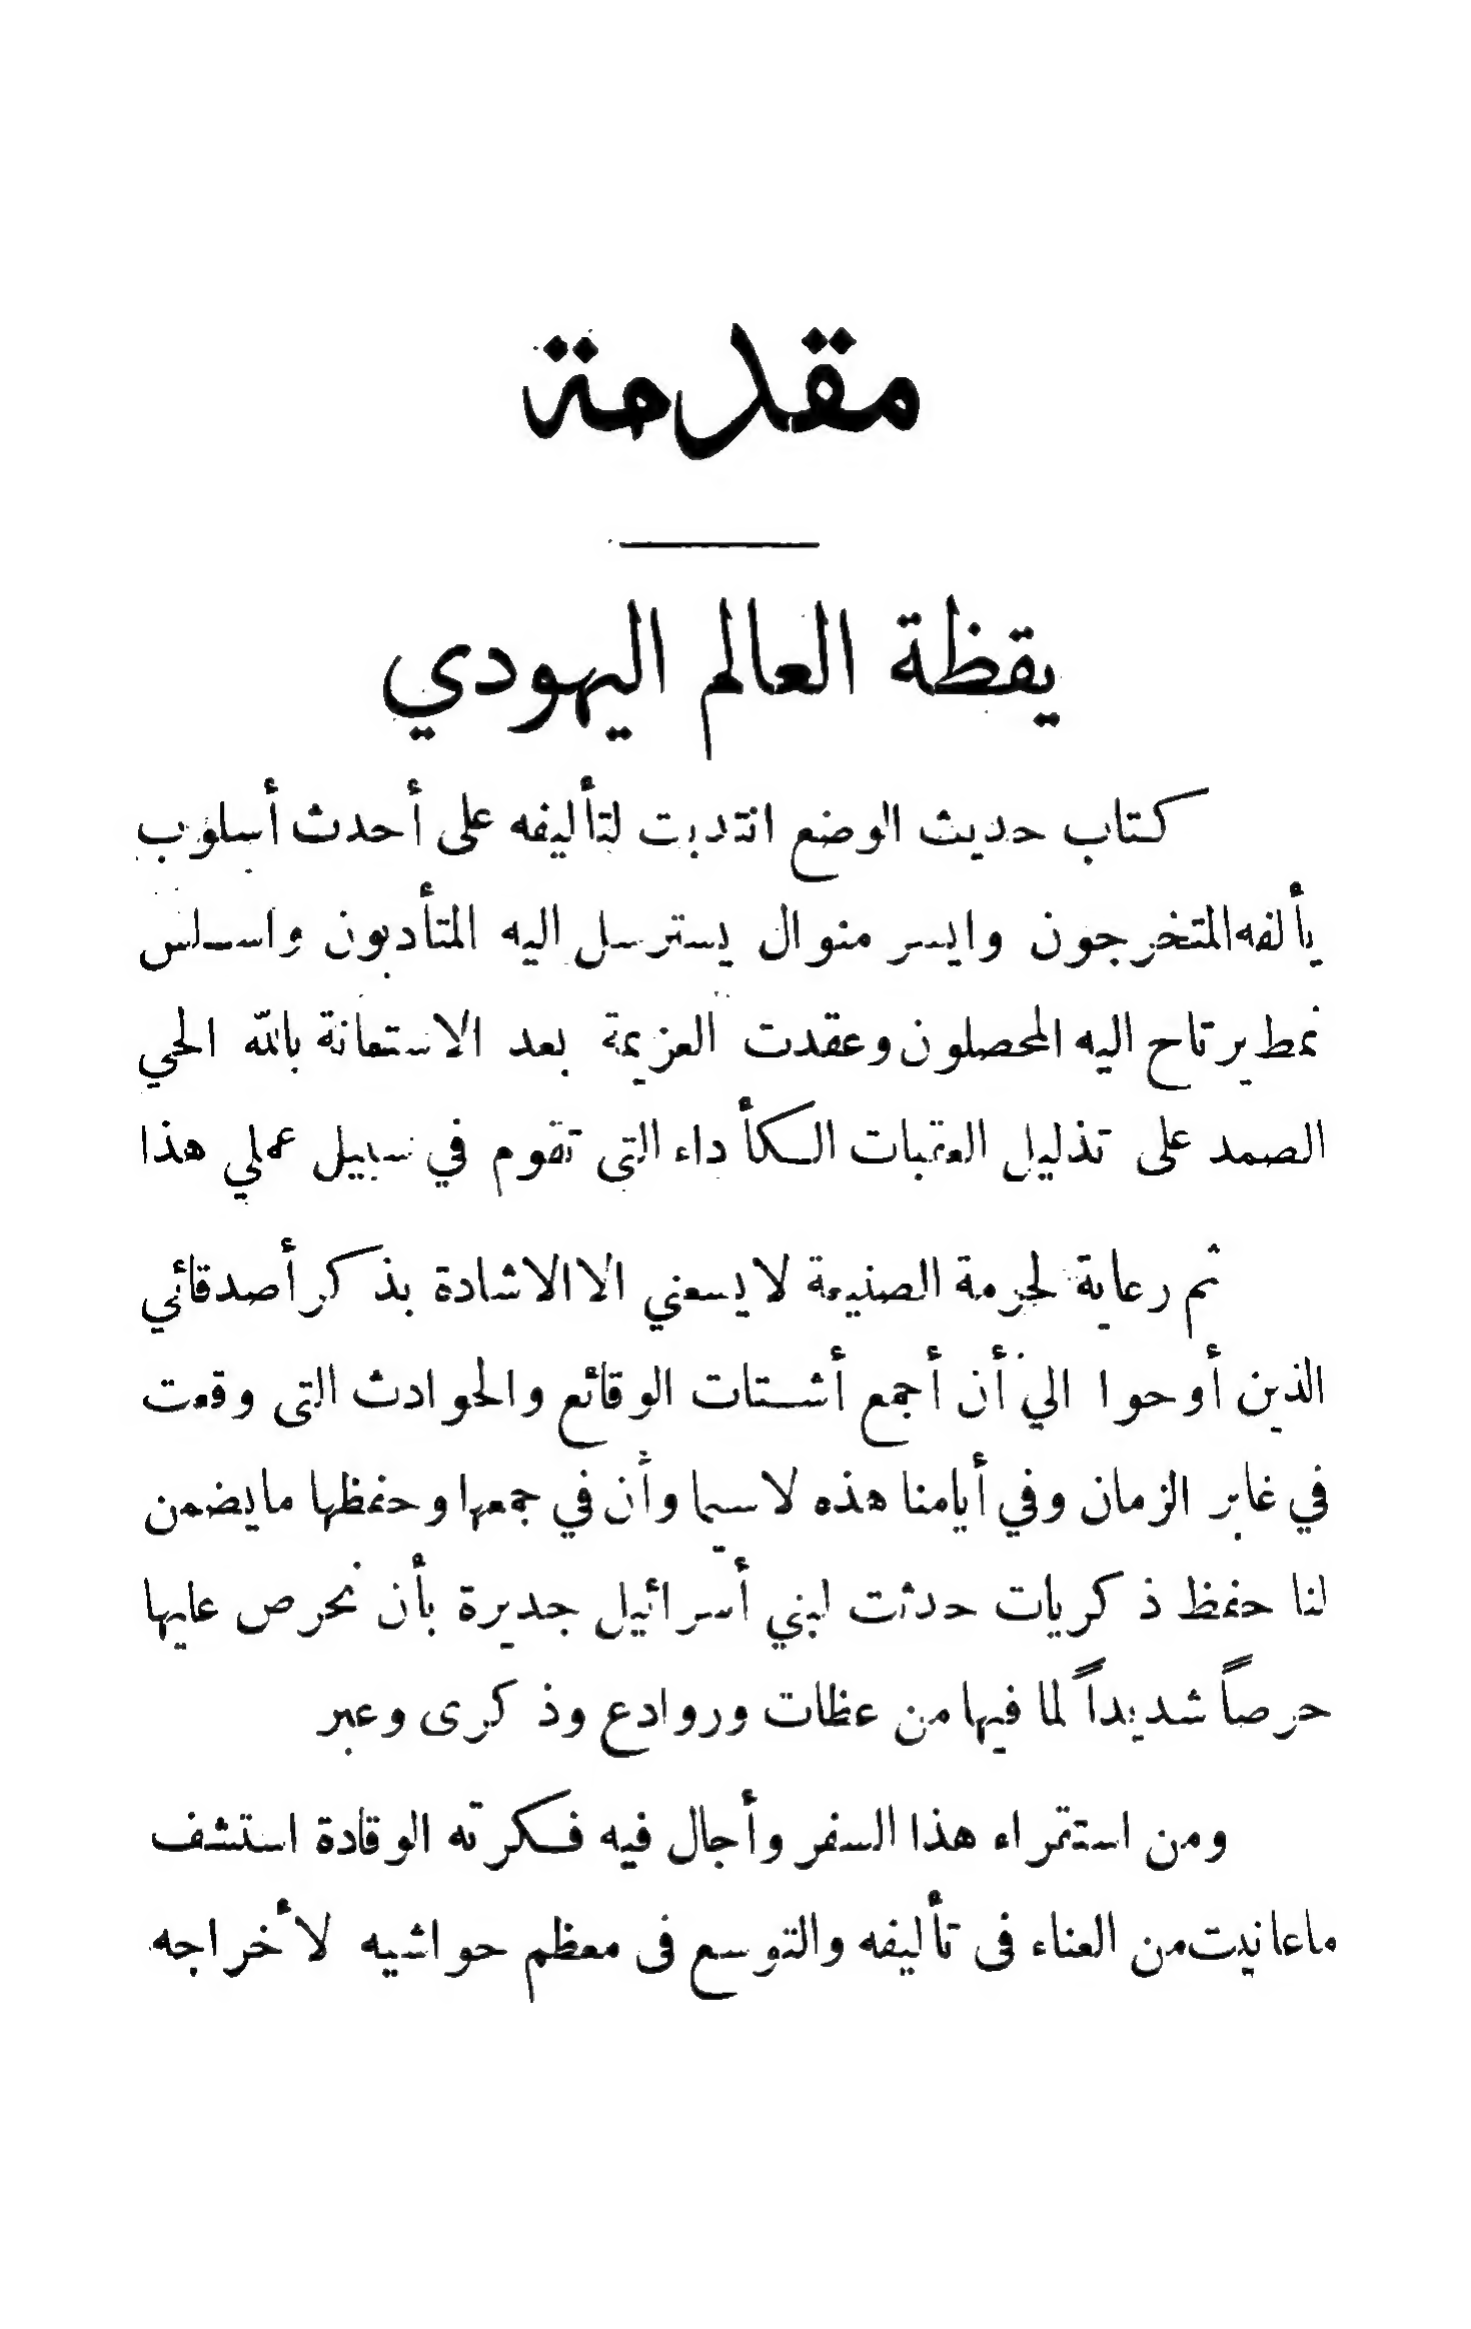 مقدمة
يقظة العالم اليهودي
كتاب حديث الوضع انتدبت لتأليفه على أحدث أسلوب
يألفه المتخرجون وايسر منوال يسترسل اليه المتأدبون واسلس
نمط يرتاح اليه المحصلون وعقدت العزيمة بعد الاستعانة بالله الحي
الصمد على تذليل العقبات الكأداء التى تقوم في سبيل عملي هذا
ثم رعاية لحرمة الصنيعة لا يسعني الا الاشادة بذكر أصدقائي
الذين أوحوا الي أن أجمع أشتات الوقائع والحوادث التى وقعت
في غابر الزمان وفي أيامنا هذه لا سيما وأن في جمعها وحفظها ما يضمن
لنا حفظ ذكريات حدثت لبني أسرائيل جديرة بأن نحرص عليها
حرصاً شديداً لما فيها من عظات وروادع وذكرى وعبر
ومن استقراء هذا السفر وأجال فيه فكرته الوقادة استشف
ما عانيت من العناء فى تأليفه والتوسع فى معظم حواشيه لأخراجه